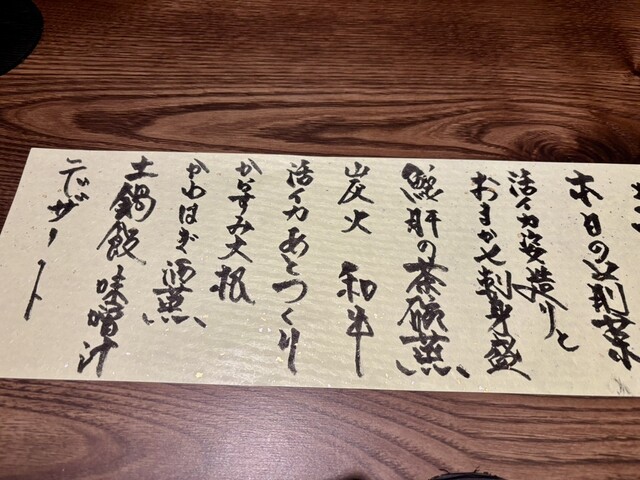 本日の前菜
活イカ姿造りと
おまかせ刺身盛
鮟肝の茶碗蒸
炭火 和牛
活イカあとつくり
からすみ大根
かわはぎ酒蒸
土鍋飯 味噌汁
デザート